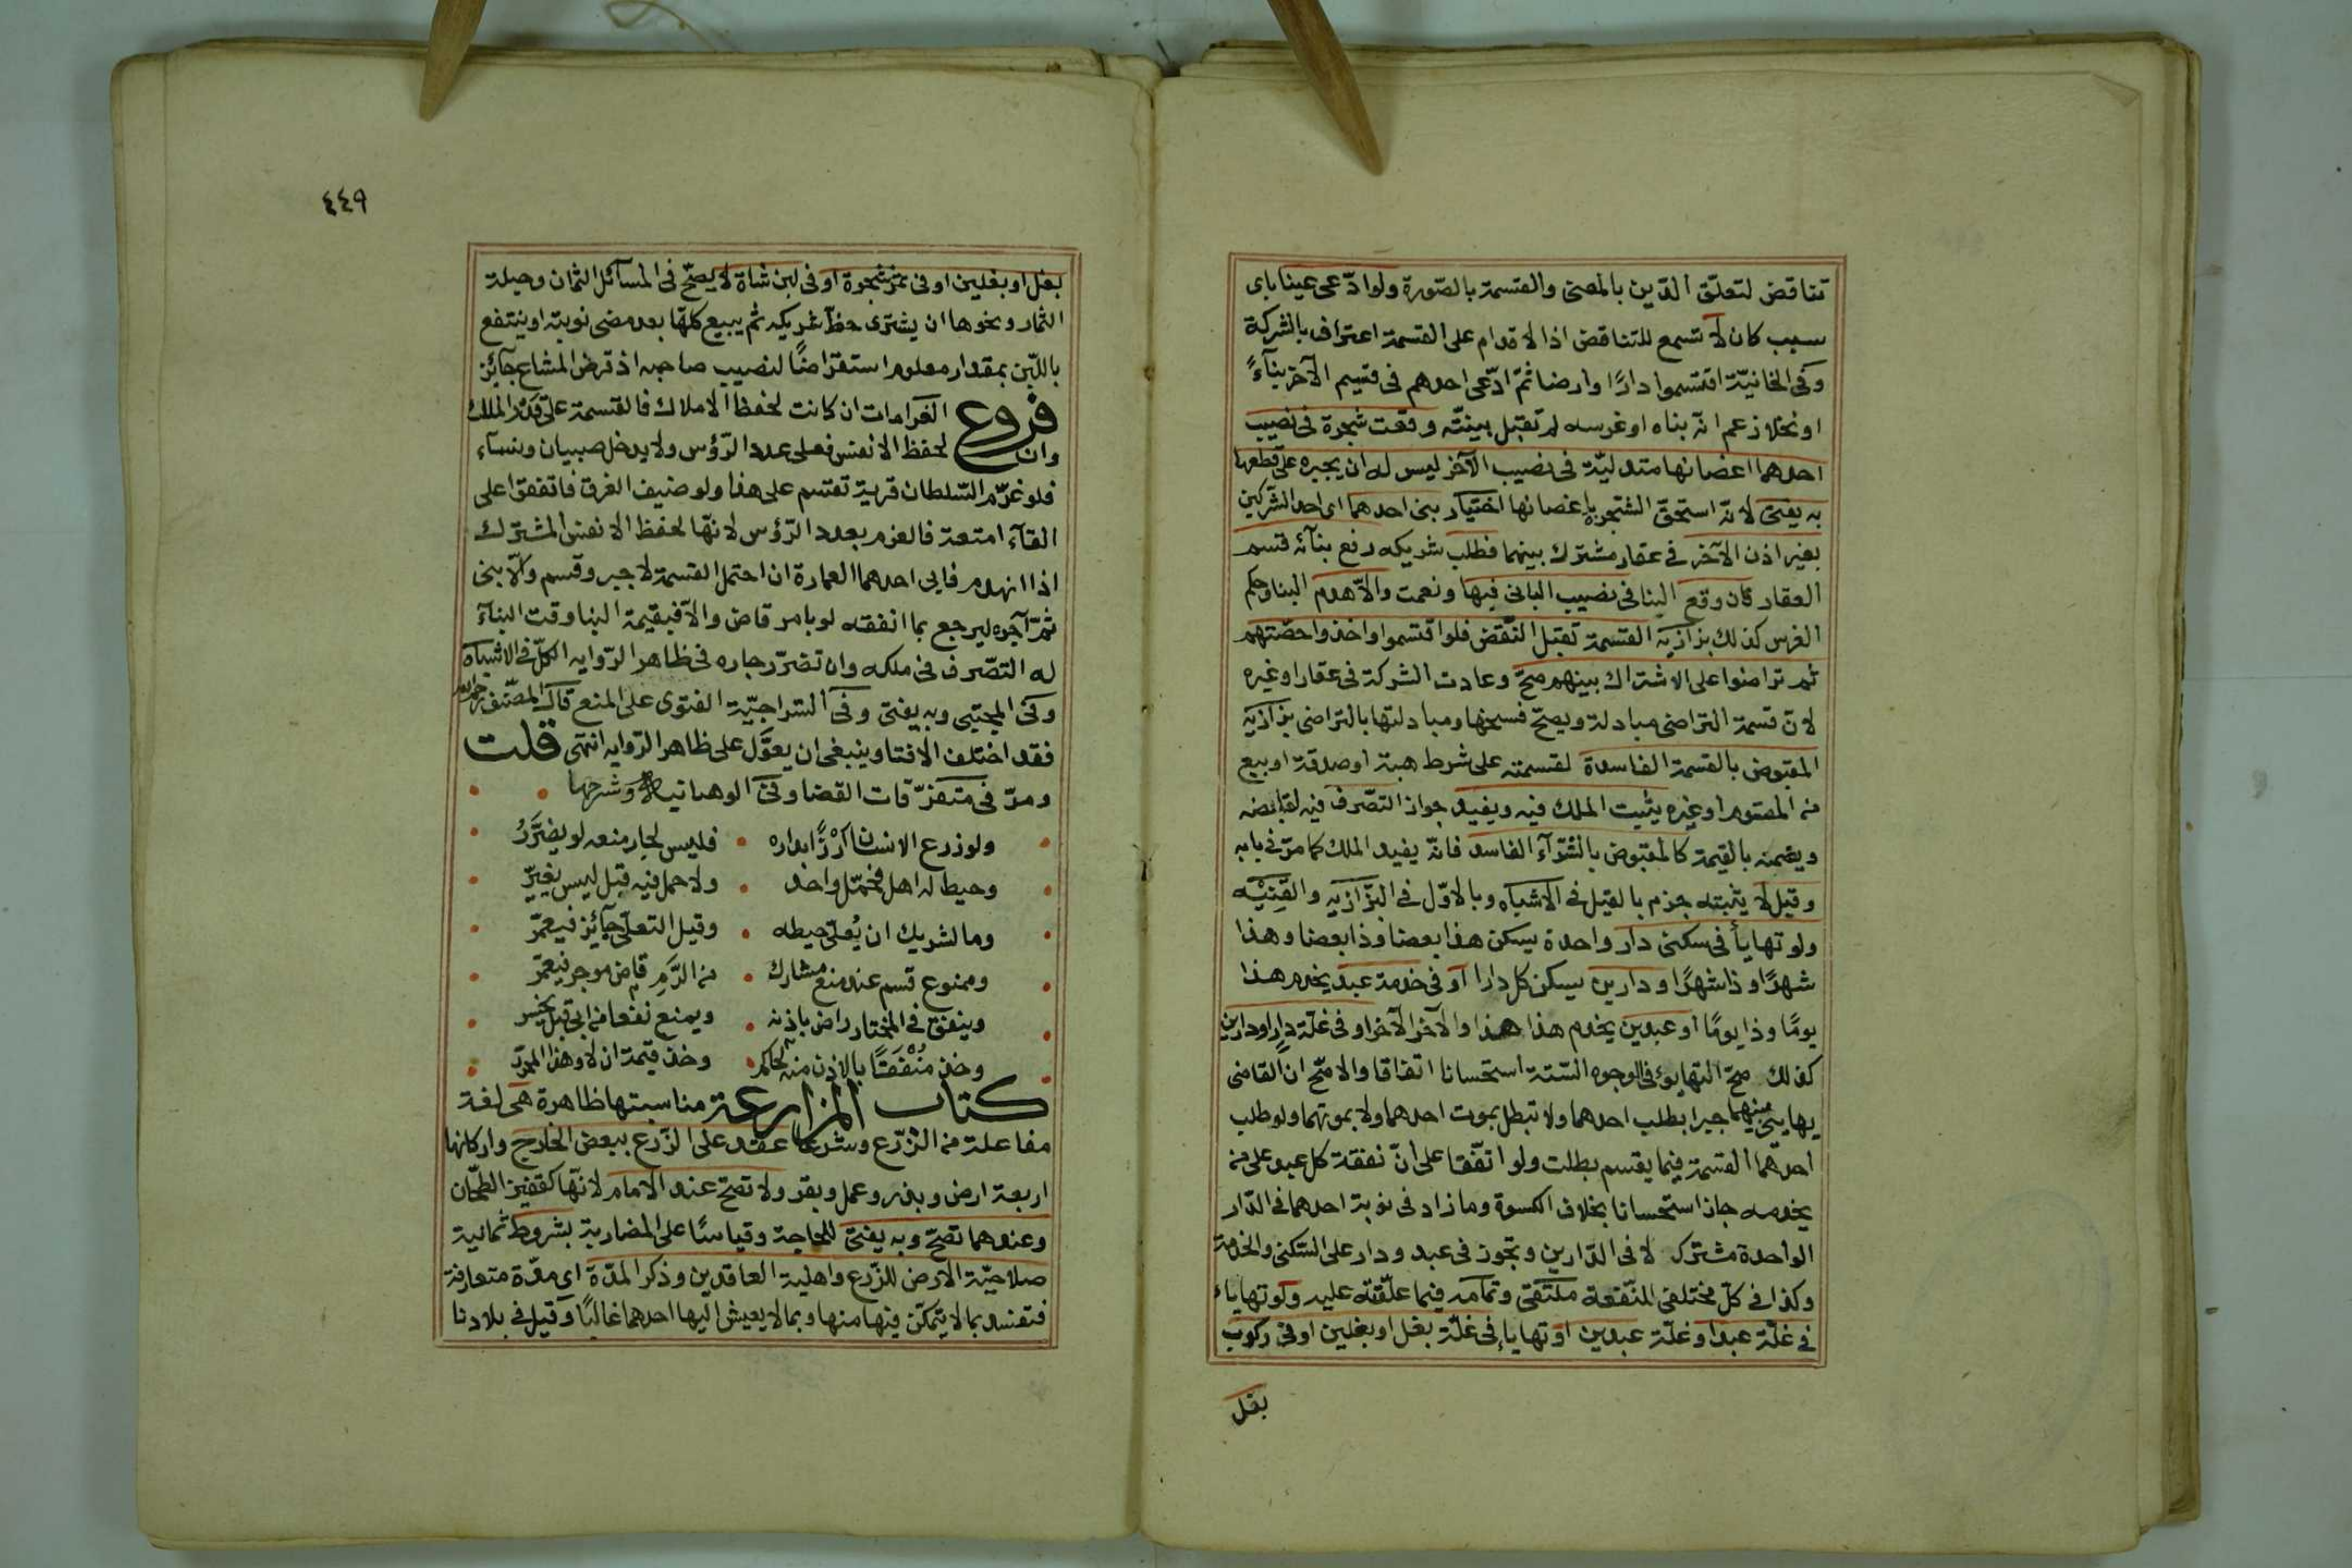 تناقض لتعلق الدّين بالمعنى والقسمة بالصّورة ولوادّعى عينا باى
سبب كان لا تسمع للتناقض اذا الاقدام على القسمة اعتراف بالشركة
وفى الخانيّة اقتسموا دارًا وارضا ثمّ ادّعى احدهم فى قسيم الآخر بنآءً
او نخلا زعم انّه بناه او غرسه لم تقبل بينتّه وقعت شجرة فى نصيب
احدهما اغصانها متدليّة فى نصيب الآخر ليس له ان يجبره على قطعها
به يفتى لانّه استحقّ الشجرة باغصانها اختيار بنى احدهما اى احد الشركين
بغير اذن الآخر فى عقار مشترك بينهما فطلب شريكه رفع بنآئه قسم
العقار فان وقع البنا فى نصيب البانى فبها ونعمت والاّ هدم البنا وحكم
الغرس كذلك بزازيّه القسمة تقبل النّقض فلو اقتسموا واخذوا حصّتهم
ثم تراضوا على الاشتراك بينهم صحّ وعادت الشركة فى عقار او غيره
لانّ قسمة التراضى مبادلة ويصحّ فسخها ومبادلتها بالتراضى بزازيّه
المقبوض بالقسمة الفاسدة لقسمته على شرط هبة او صدقة او بيع
من المقسوم او غيره يثبت الملك فيه ويفيد جواز التصّرف فيه لقابضه
ويضمنه بالقيمة كالمقبوض بالشّرآء الفاسد فانّه يفيد الملك كما مرّ فى بابه
وقيل لا يثبته جزم بالقيل فى الاشباه وبالاوّل فى البزّازيه والقنيه
ولو تهايأ فى سكنى دار واحدة يسكن هذا بعضا وذا بعضا وهذا
شهرًا وذا شهرًا او دارين يسكن كل دارا او فى خدمة عبد يخدم هذا
يومًا وذا يومًا او عبدين يخدم هذا هذا والآخر الآخر او فى غلّة دار او دارين
كذلك صحّ التهايؤ فى الوجوه السّتة استحسانا اتفاقا والاصحّ ان القاضى
يهايئ بينهما جبرا بطلب احدهما ولا تبطل بموت احدهما ولا بموتهما ولو طلب
احدهما القسمة فيما يقسم بطلت ولو اتفّقا على انّ نفقة كل عبد على من
يخدمه جاز استحسانا بخلاف الكسوة وما زاد فى نوبة احدهما فى الدّار
الواحدة مشترك لا فى الدّارين وتجوز فى عبد ودار على السّكنى والخدمة
وكذا فى كلّ مختلفى المنفعة ملتقى وتمامه فيما علّقته عليه ولو تهاياء
فى غلّة عبد او غلّة عبدين او تهايا فى غلّة بغل او بغلين او فى ركوب
بغل
٤٤٩
بغل او بغلين او فى تمر شجرة او فى لبن شاة لا يصحّ فى المسآئل الثمان وحيلة
الثمار ونحوها ان يشترى حظّ شريكه ثم يبيع كلهّا بعد مضى نوبته او ينتفع
باللّبن بمقدار معلوم استقراضًا لنصيب صاحبه اذ قرض المشاع جآئز
فروع الغرامات ان كانت لحفظ الاملاك فالقسمة على قدر الملك
وان لحفظ الانفس فعلى عدد الرّؤس ولا يدخل صبيان ونسآء
فلو غرّم السّلطان قرية تقسم على هذا ولو خيف الغرق فاتفقوا على
القآء امتعة فالغرم بعدد الرّؤس لانهّا لحفظ الانفس المشترك
اذا انهدم فابى احدهما العمارة ان احتمل القسمة لا جبر وقسم والاّ بنى
ثمّ آجره ليرجع بما انفقه لو بامر قاض والاّ فبقيمة البنا وقت البنآء
له التصّرف فى ملكه وان تضرّر جاره فى ظاهر الرّوايه الكلّ فى الاشباه
وفى المجتبى وبه يفتى وفى السّراجيّة الفتوى على المنع قال المصّنف رحمه الله
فقد اختلف الافتا وينبغى ان يعوّل على ظاهر الرّوايه انتهى قلت
ومرّ فى متفرّقات القضا وفى الوهبانيه وشرحها
ولو زرع الانسان ارُزًّا بداره فليس لجار منعه لو يضرّرُ
وحيط له اهل فحمّل واحد ولا حمل فيه قبل ليس يغيّر
وما لشريك ان يُعلّى حيطه وقيل التعلّى جآئز فيعمّر
وممنوع قسم عند منع مشارك من الرّمِ قاض موجر فيعمّر
وينفق فى المختار راض باذنه ويمنع نفعا من ابى قبل يخسر
وخذ مُنْفَقًا بالاذن منه لحاكم وخذ قيمة ان لا وهذا المحرّر
كتاب المزارعة مناسبتها ظاهرة هى لغة
مفاعلة من الزّرع وشرعا عقد على الزّرع ببعض الخارج واركانها
اربعة ارض وبذر وعمل وبقر ولا تصّح عند الامام لانهّا كقفيز الطحّان
وعندهما تصّح وبه يفتى للحاجة وقياسًا على المضاربة بشروط ثمانية
صلاحيّة الارض للزّرع واهلية العاقدين وذكر المدّة اى مدّة متعارفة
فتفسد بما لا يتمكّن فيها منها وبما لا يعيش اليها احدهما غالبًا وقيل فى بلادنا